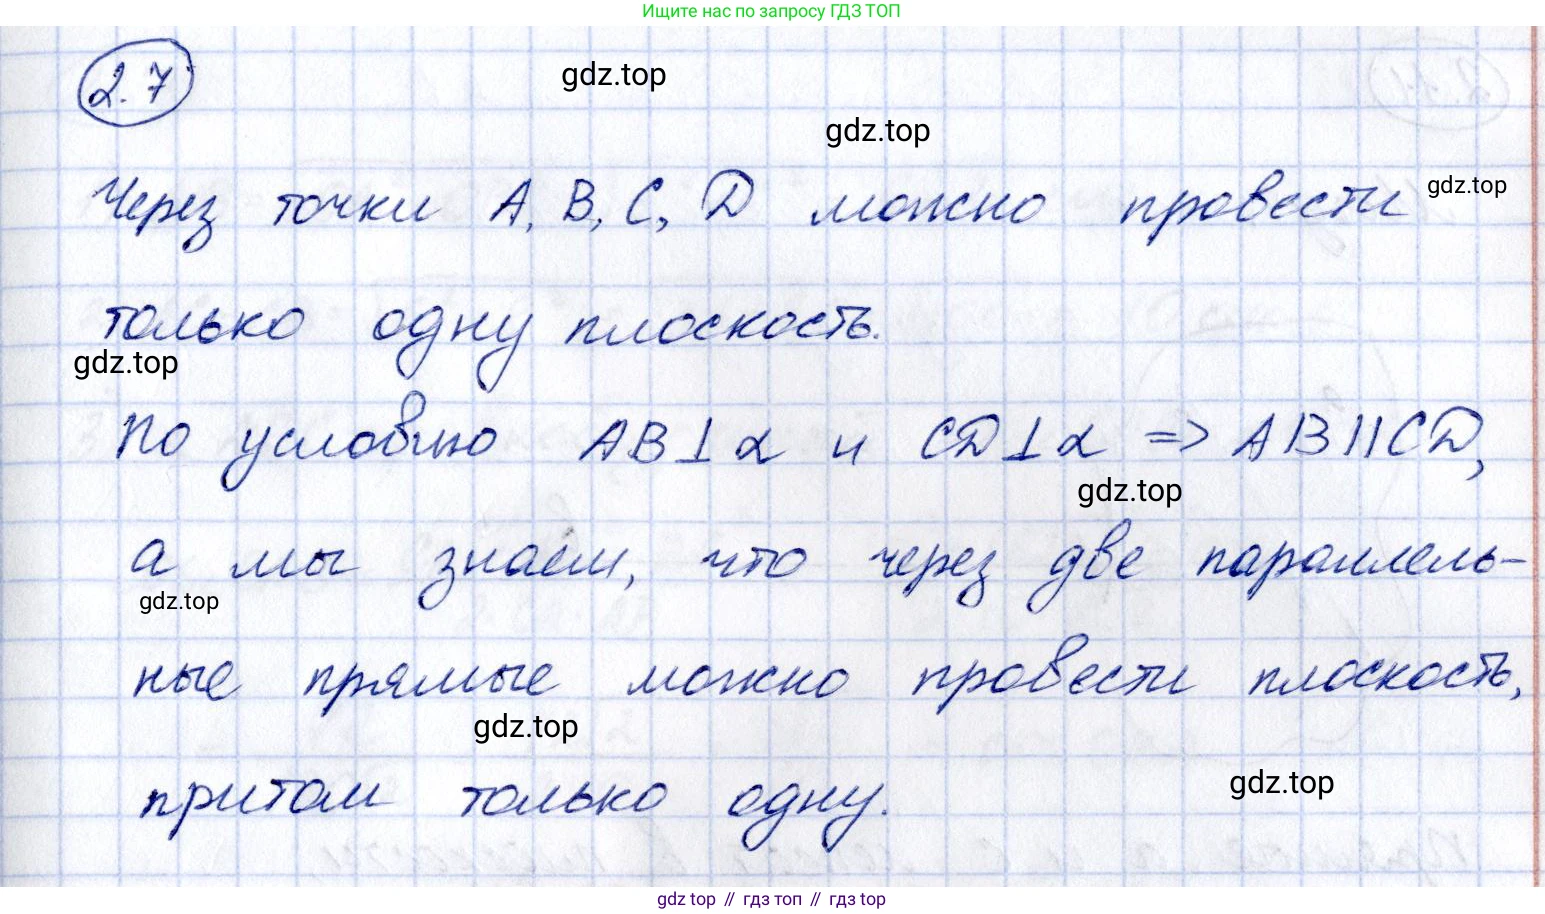 Ищите нас по запросу ГДЗ ТОП
2.7
gdz.top
gdz.top
Через точки А, В, С, D можно провести
gdz.top
только одну плоскость.
gdz.top
По условию AB⊥α и CD⊥α => AB||CD,
gdz.top
а мы знаем, что через две параллель-
gdz.top
ные прямые можно провести плоскость,
gdz.top
притом только одну.
gdz.top
gdz top // гдз топ // гдз top